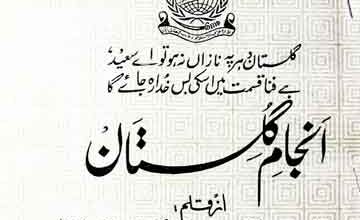 گلستانِ دہر پہ نازاں نہ ہو تو اے سعیدؔ
ہے فنا قسمت میں اسکی بس خدا رہ جائے گا
انجامِ گلستان
از قلم: